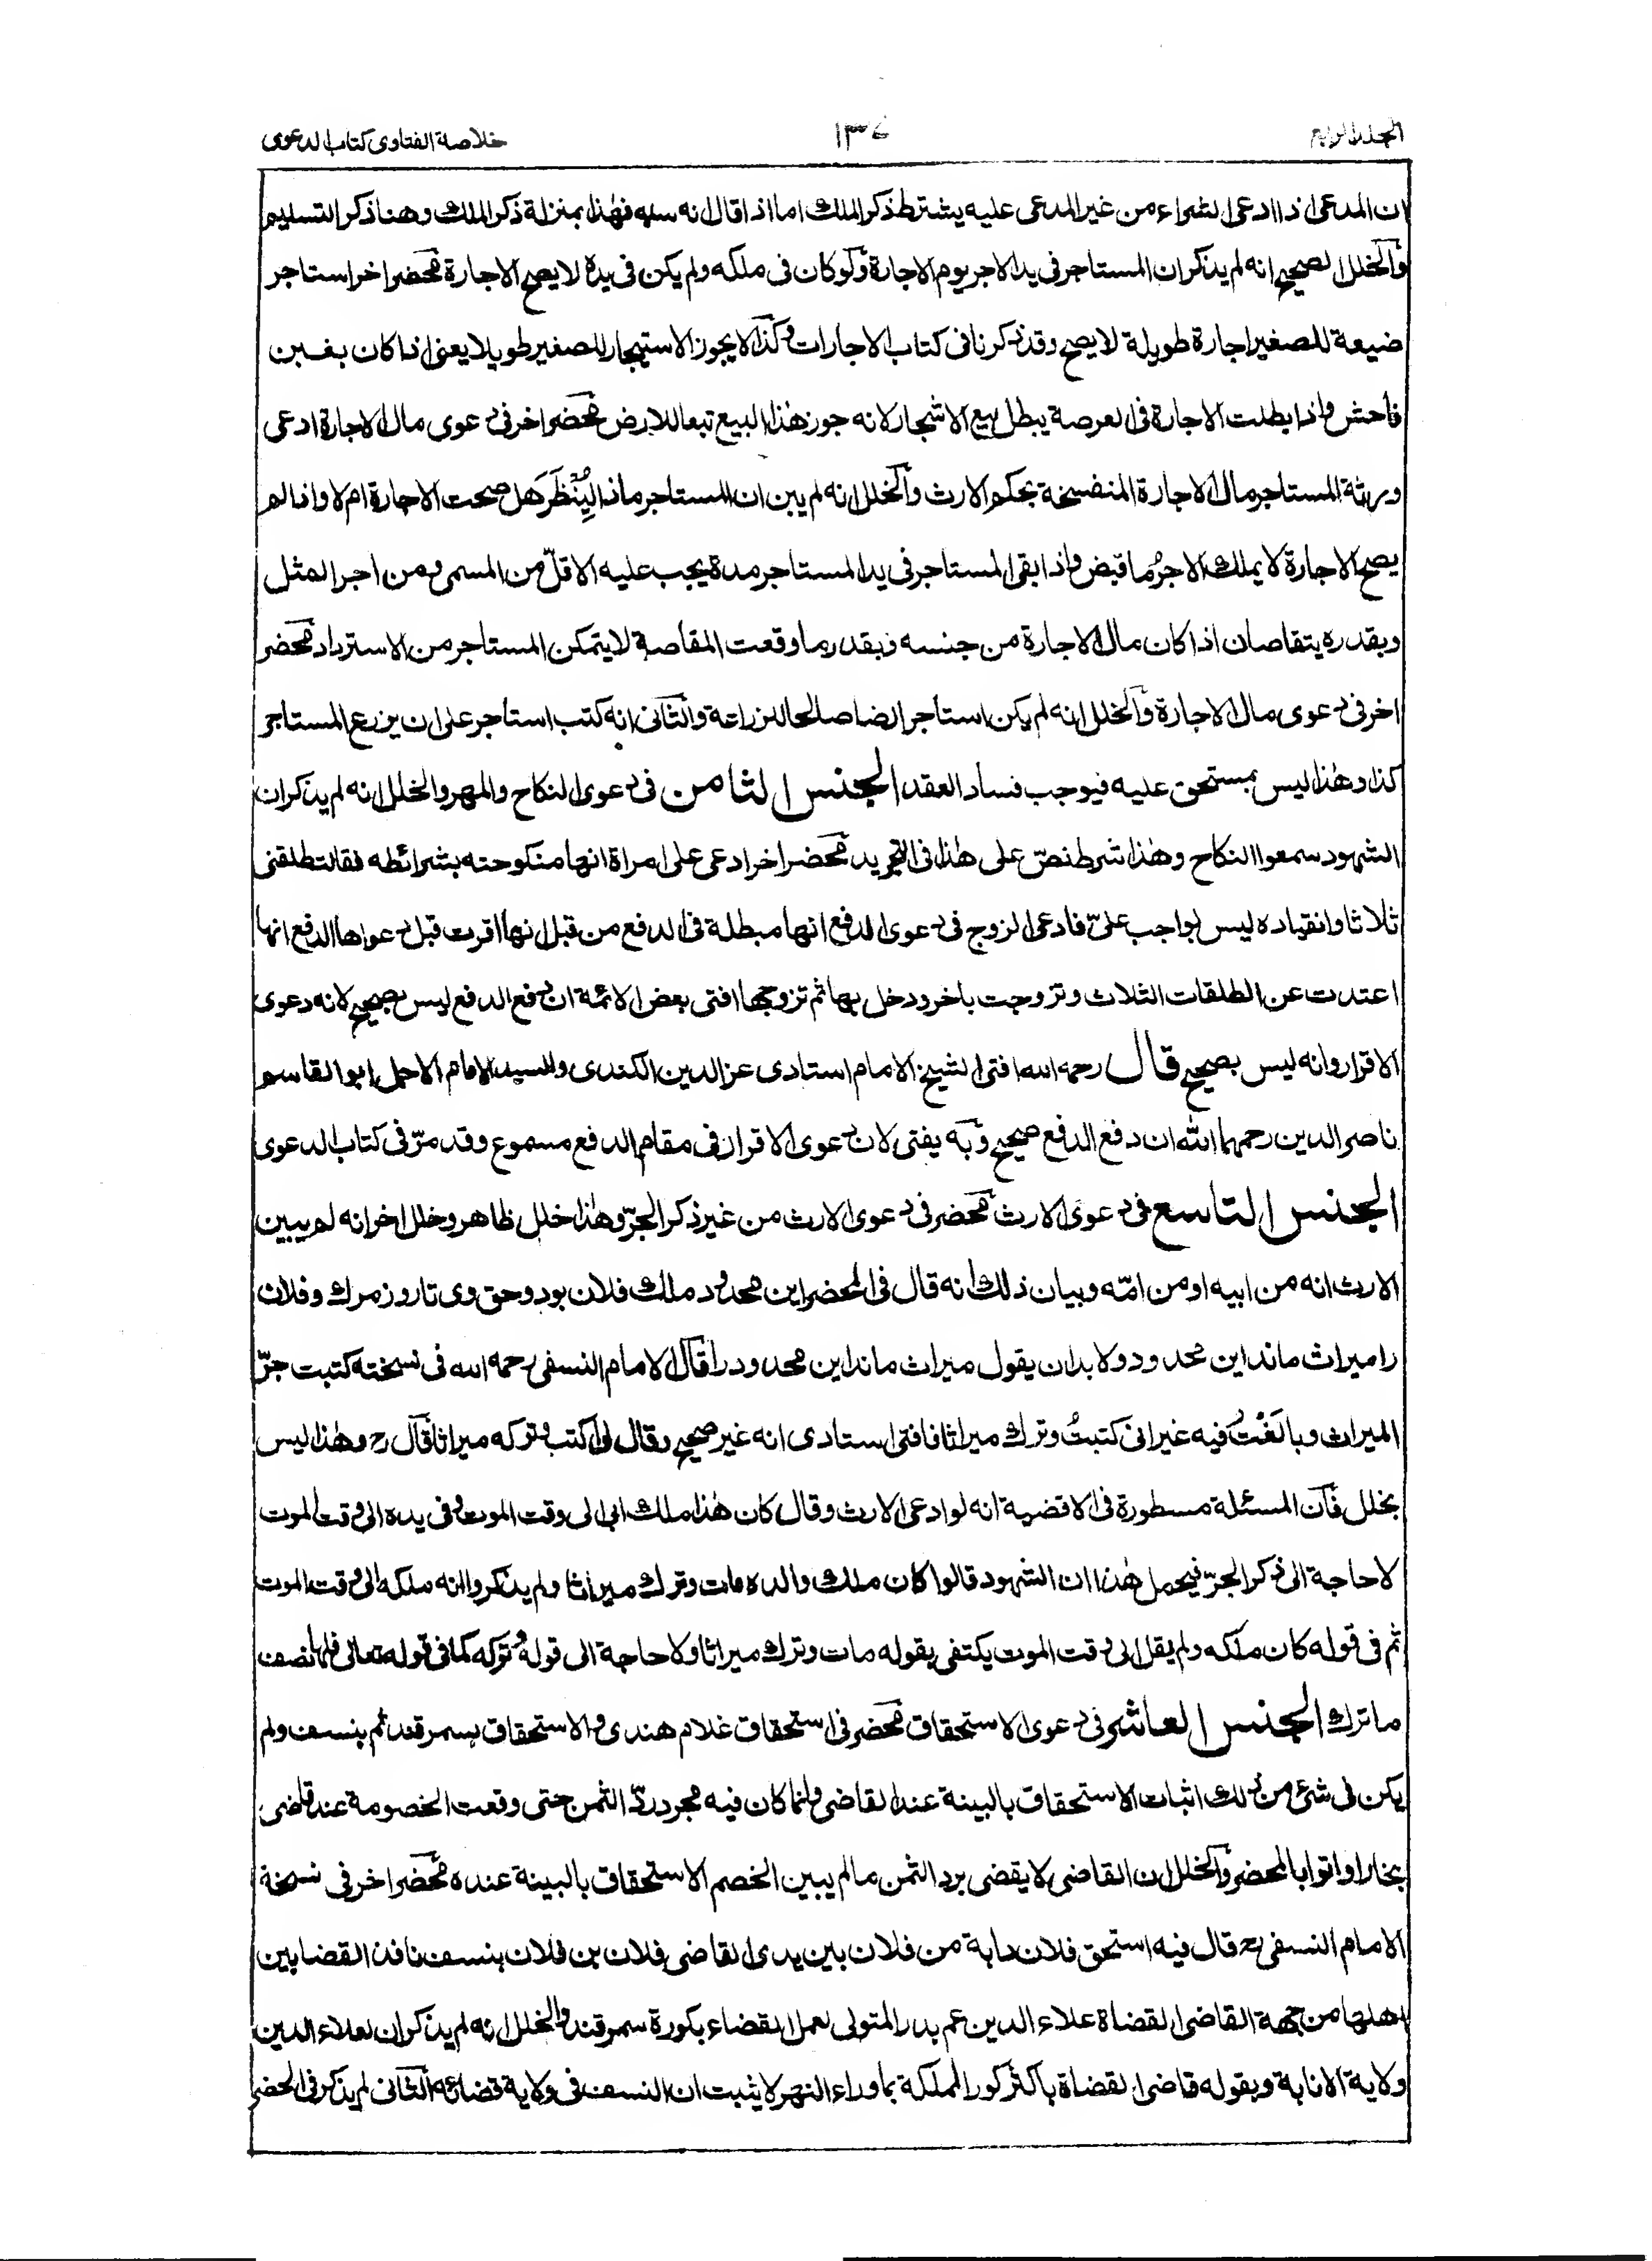 الجلد الرابع
١٣٧
خلاصة الفتاوى كتاب الدعوى
ان المدعى اذا ادعى الشراء من غير المدعى عليه يشترط ذكر الملك اما اذا قال انه سلمه فهذا بمنزلة ذكر الملك وهنا ذكر التسليم
والخلل الصحيح انه لم يذكر ان المستاجر فى يد الاجر يوم الاجارة ولو كان فى ملكه ولم يكن فى يده لا يصح الاجارة محضر اخر استاجر
ضيعة للصغير اجارة طويلة لا يصح وقد ذكرنا فى كتاب الاجارات وكذا لا يجوز الاستيجار للصغير طويلا يعنى اذا كان بغبن
فاحش واذا بطلت الاجارة فى العرصة يبطل بيع الاشجار لانه جوز هذا البيع تبعا للارض محضر اخر فى دعوى مال الاجارة ادعى
ورثة المستاجر مال الاجارة المنفسخة بحكم الارث والخلل انه لم يبين ان المستاجر ماذا لِيُنْظَرَ هل صحت الاجارة ام لا واذا لم
يصح الاجارة لا يملك الاجرُ ما قبض واذا بقى المستاجر فى يد المستاجر مدة يجب عليه الاقلّ من المسمى ومن اجر المثل
وبقدره يتقاصان اذا كان مال الاجارة من جنسه وبقدر ما وقعت المقاصة لا يتمكن المستاجر من الاسترداد محضر
اخر فى دعوى مال الاجارة والخلل انه لم يكن استاجر ارضا صالحا للزراعة والثانى انه كتب استاجر على ان يزرع المستاجر
كذا وهذا ليس بمستحق عليه فيوجب فساد العقد الجنس الثامن فى دعوى النكاح والمهر والخلل انه لم يذكر ان
الشهود سمعوا النكاح وهذا شرط نصّ على هذا فى التجريد محضر اخر ادعى على امراة انها منكوحته بشرائطه فقالت طلقنى
ثلاثا وانقياده ليس بواجب علىّ فادعى الزوج فى دعوى الدفع انها مبطلة فى الدفع من قبل انها اقرت قبل دعواها الدفع انها
اعتدت عن الطلقات الثلاث وتزوجت باخر ودخل بها ثم تزوجها افتى بعض الائمة ان دفع الدفع ليس بصحيح لانه دعوى
الاقرار وانه ليس بصحيح قال رحمه الله افتى الشيخ الامام استادى عز الدين الكندى والسيد الامام الاجل ابو القاسم
ناصر الدين رحمهما الله ان دفع الدفع صحيح وبه يفتى لان دعوى الاقرار فى مقام الدفع مسموع وقد مرّ فى كتاب الدعوى
الجنس التاسع فى دعوى الارث محضر فى دعوى الارث من غير ذكر الجرّ وهذا خلل ظاهر وخلل اخر انه لم يبين
الارث انه من ابيه او من امّه وبيان ذلك انه قال فى المحضر اين محدود ملك فلان بود وحق وى تا روز مرك وفلان
را ميراث ماند اين محدود ولا بد ان يقول ميراث ماند اين محدود را قال الامام النسفى رحمه الله فى نسخته كتبت جرّ
الميراث وبالَغْتُ فيه غير انى كتبتُ وترك ميراثا فافتى استادى انه غير صحيح وقال لى اكتب وتركه ميراثا قال رح وهذا ليس
بخلل فان المسئلة مسطورة فى الاقضية انه لو ادعى الارث وقال كان هذا ملك ابى الى وقت الموت وفى يده الى وقت الموت
لا حاجة الى ذكر الجرّ فيحمل هذا ان الشهود قالوا كان ملك والده مات وترك ميراثا ولم يذكروا انه ملكه الى وقت الموت
ثم فى قوله كان ملكه ولم يقل الى وقت الموت يكتفى بقوله مات وترك ميراثا ولا حاجة الى قوله وتركه كما فى قوله تعالى فلها نصف
ما ترك الجنس العاشر فى دعوى الاستحقاق محضر فى استحقاق غلام هندى والاستحقاق بسمرقند ثم بنسف ولم
يكن فى شئ من ذلك اثبات الاستحقاق بالبينة عند القاضى وانما كان فيه مجرد ردّ الثمن حتى وقعت الخصومة عند قاضى
بخارا واتوا بالمحضر والخلل ان القاضى لا يقضى برد الثمن ما لم يبين الخصم الاستحقاق بالبينة عنده محضر اخر فى نسخة
الامام النسفى رح قال فيه استحق فلان دابة من فلان بين يدى القاضى فلان بن فلان بنسف نافذ القضا بين
اهلها من جهة القاضى القضاة علاء الدين عم بدر المتولى لعمل القضاء بكورة سمرقند والخلل انه لم يذكر ان لعلاء الدين
ولاية الانابة وبقوله قاضى القضاة باكثر كور المملكة بماوراء النهر لا يثبت ان النسف فى ولاية قضائه الثانى لم يذكر فى المحضر